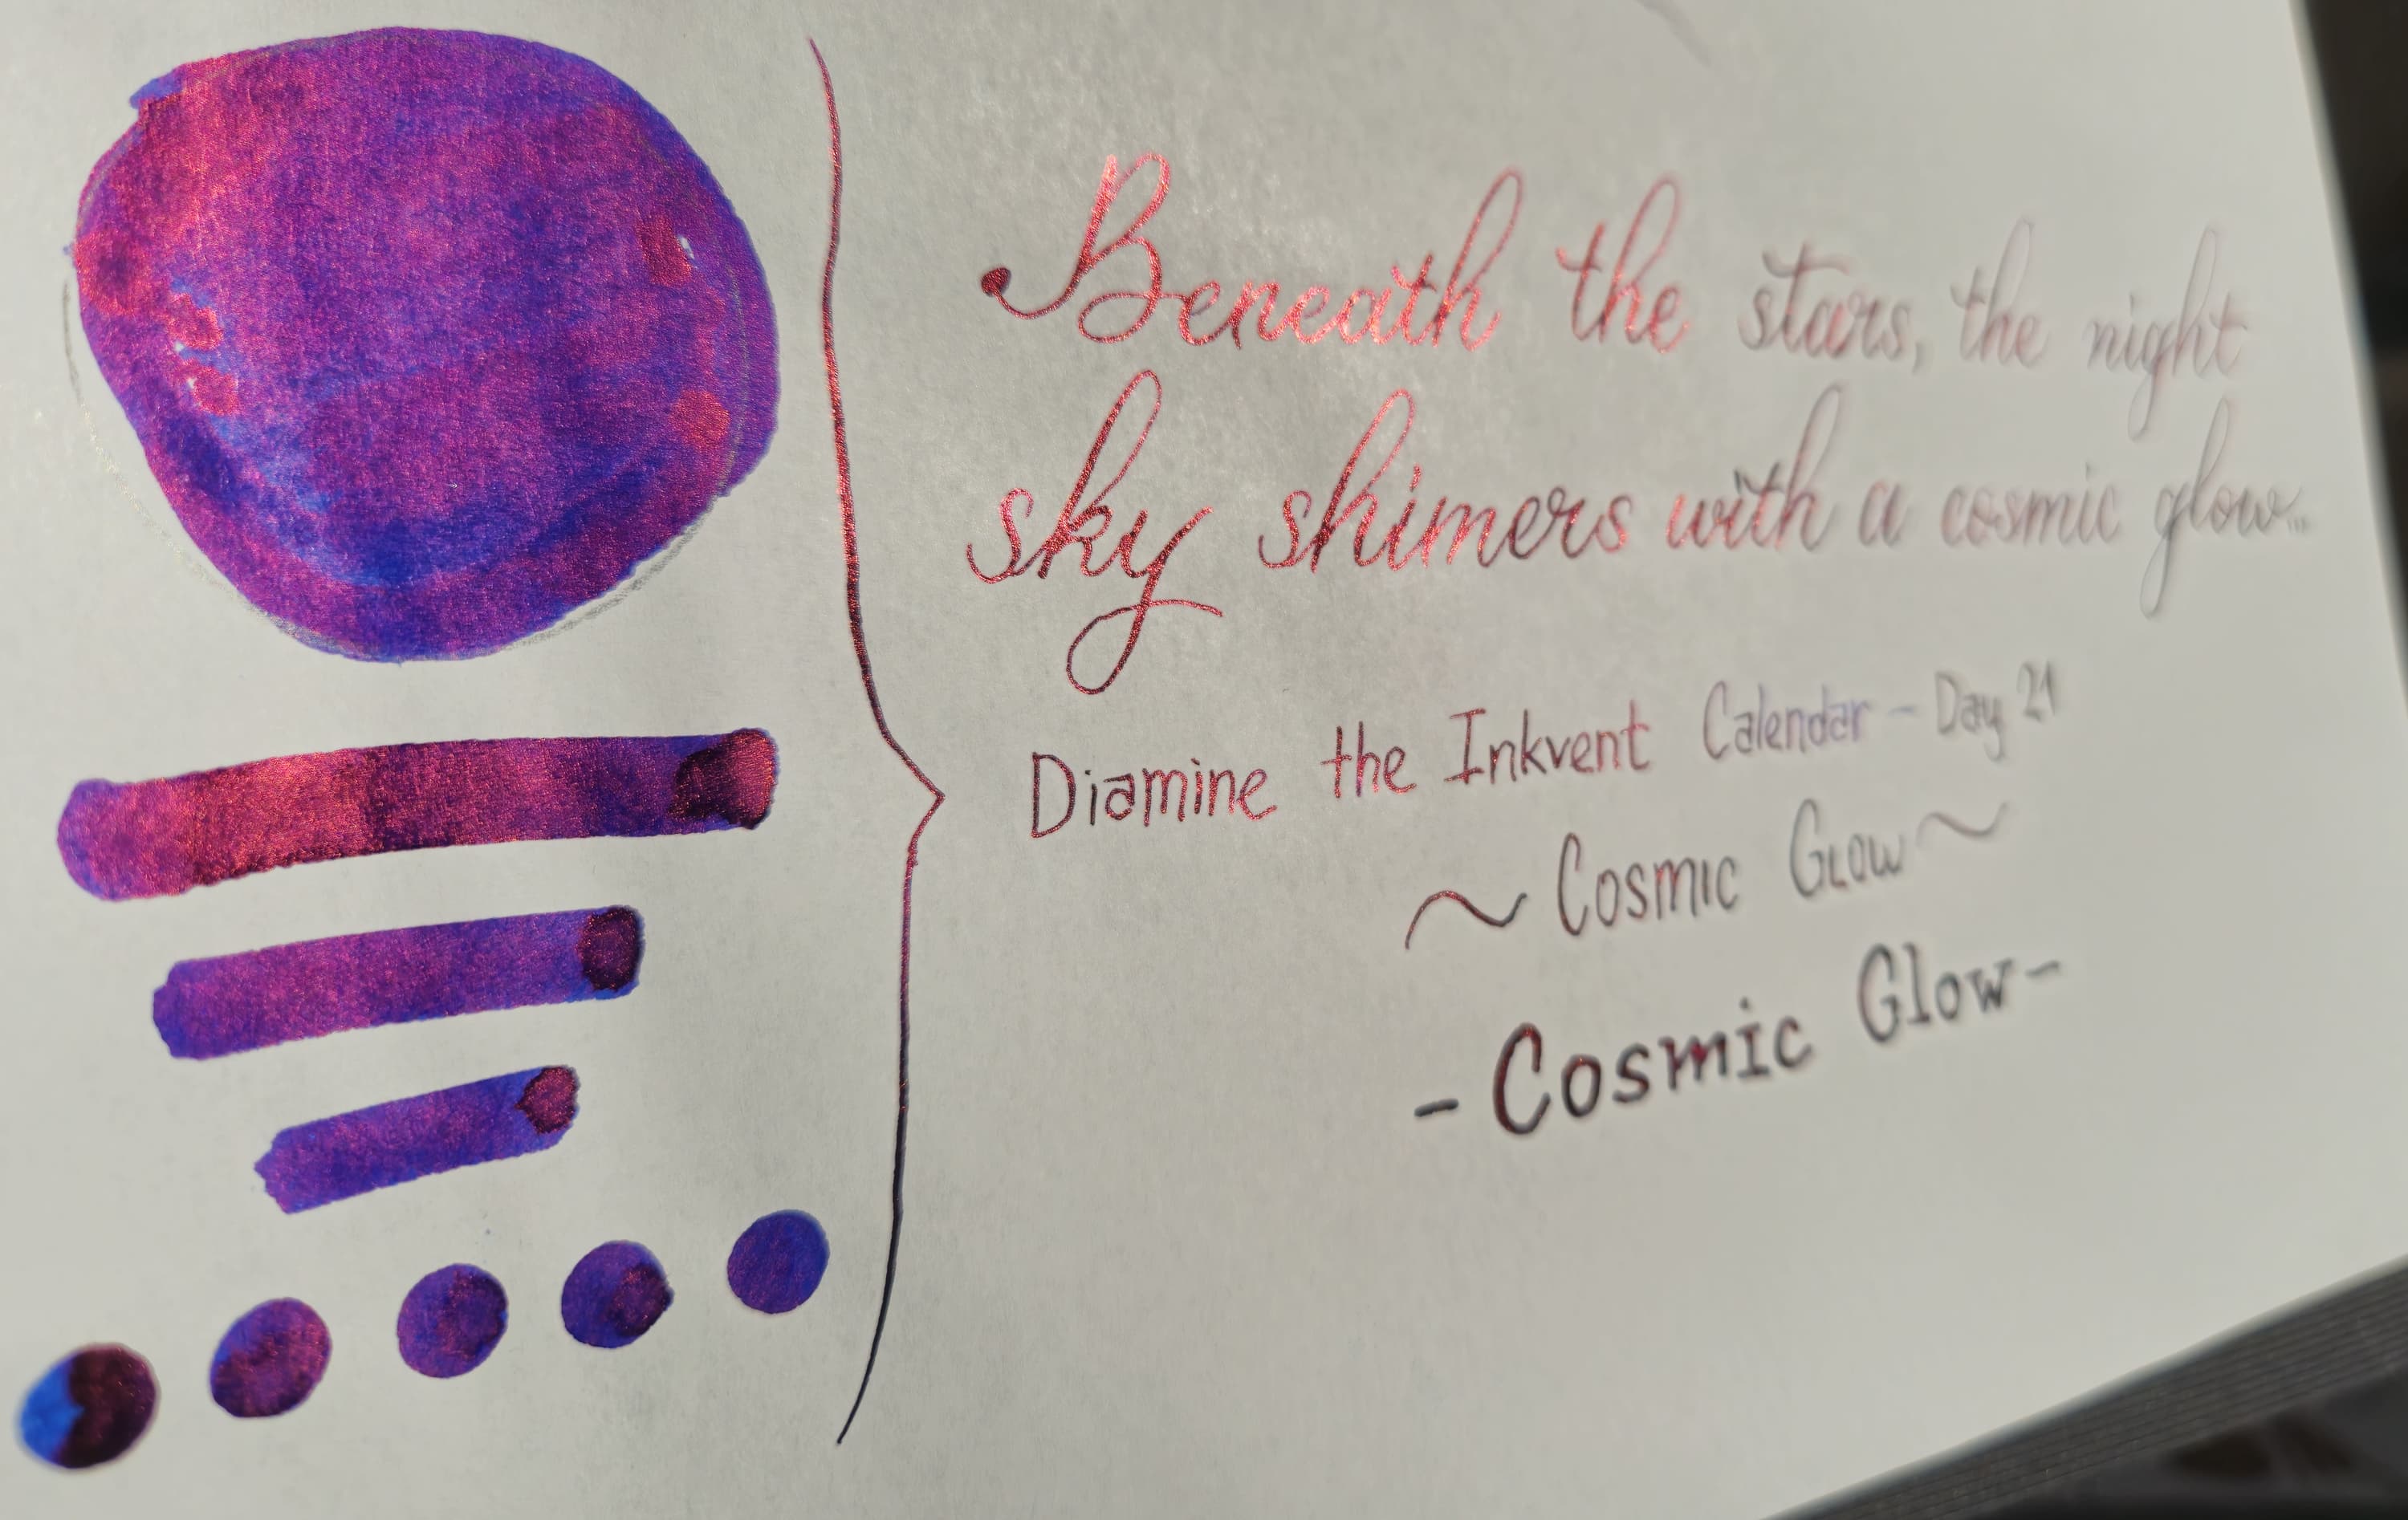 Beneath the stars, the night
sky shimers with a cosmic glow...
Diamine the Inkvent Calendar - Day 21
~ Cosmic Glow ~
- Cosmic Glow -